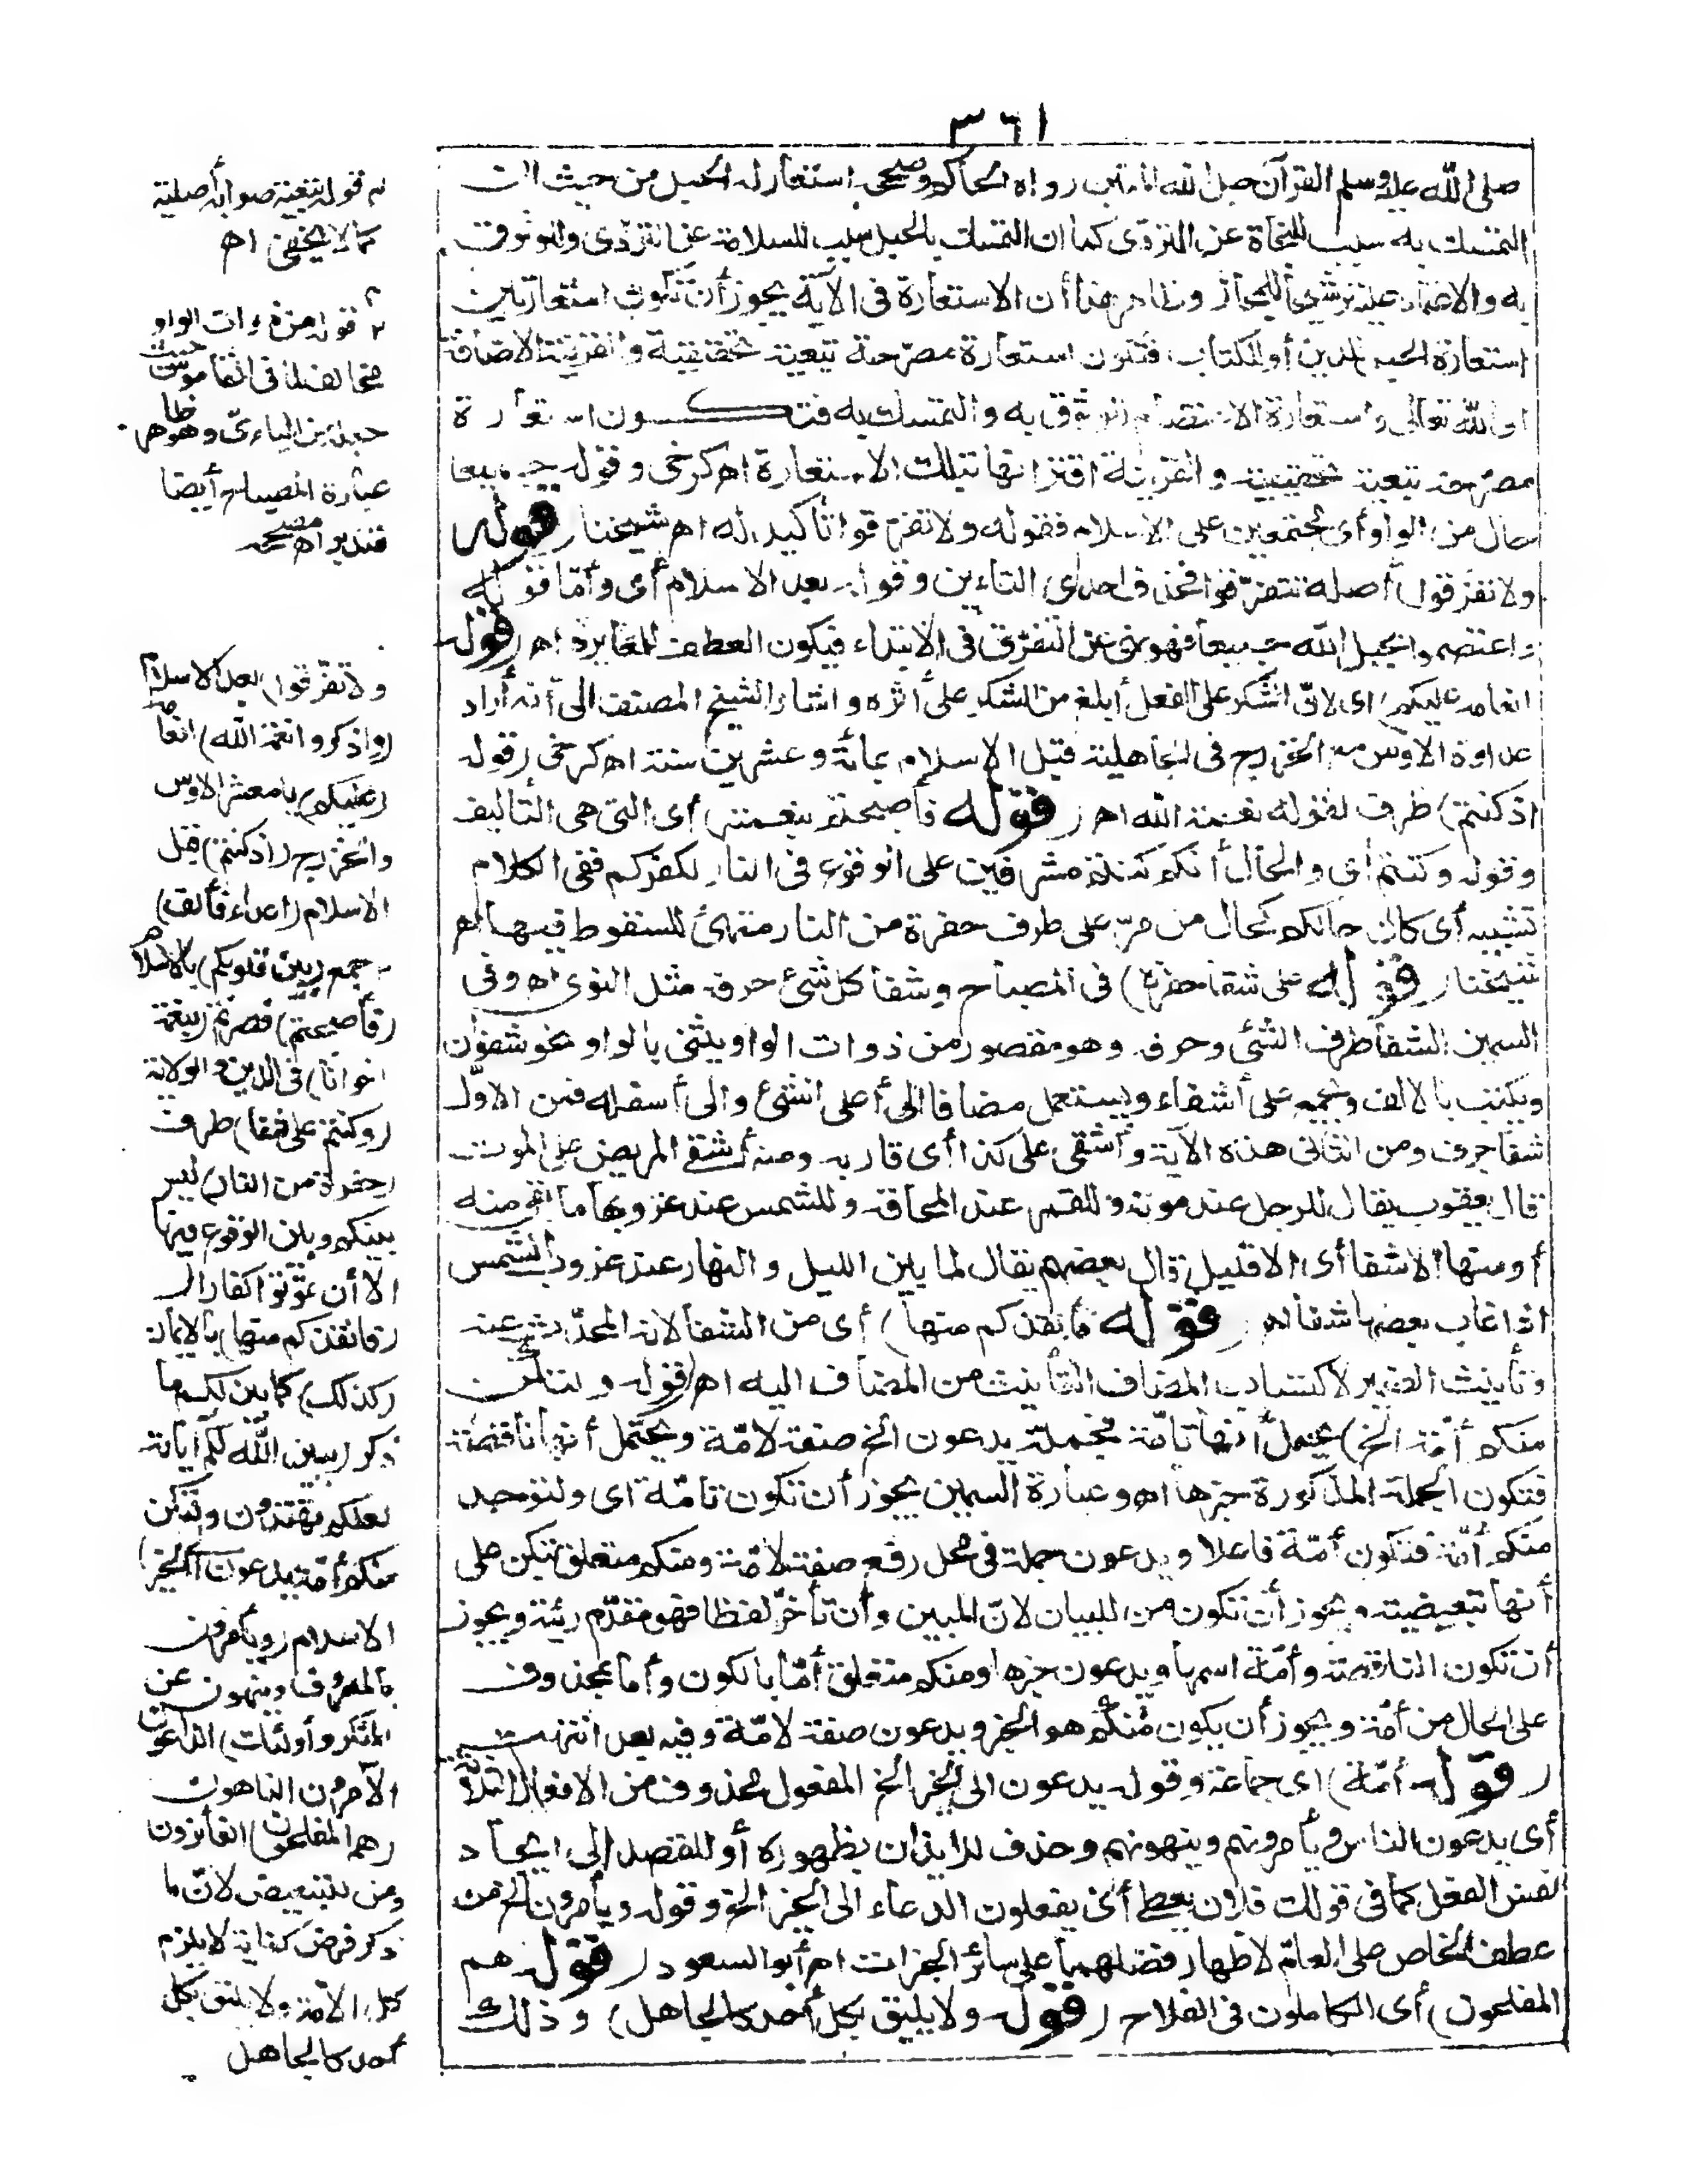 ٣٦١
صلى الله عليه وسلم القرآن حبل الله المتين رواه الحاكم وصححه استعار له الحبل من حيث ان
التمسك به سبب للنجاة عن التردى كما ان التمسك بالحبل سبب للسلامة عن التردى والوثوق
به والاعتماد عليه ترشيحا للمجاز وظاهر هذا أن الاستعارة فى الآية يجوز أن تكون استعارتين
استعارة الحبل للدين أو للكتاب فتكون استعارة مصرّحة تبعية تحقيقية والقرينة الاضافة
الى الله تعالى واستعارة الاعتصام للوثوق به والتمسك به فتكون استعارة
مصرّحة تبعية تحقيقية والقرينة اقترانها بتلك الاستعارة اه كرخى وقوله جميعا
حال من الواو أى مجتمعين على الاسلام فقوله ولا تفرقوا تأكيد له اه شيخنا (قوله
ولا تفرقوا) أصله تتفرّقوا فحذف احدى التاءين وقوله بعد الاسلام أى وأمّا قوله
واعتصموا بحبل الله جميعا فهو نهى عن التفرّق فى الابتداء فيكون العطف للمغايرة اه (قوله
انعامه عليكم) اى لانّ الشكر على الفعل أبلغ من الشكر على أثره واشار الشيخ المصنف الى أنه أراد
عداوة الاوس مع الخزرج فى الجاهلية قبل الاسلام بمائة وعشرين سنة اه كرخى (قوله
اذ كنتم) ظرف لقوله نعمة الله اه (قوله فأصبحتم بنعمته) أى التى هى التأليف
وقوله وكنتم أى والحال أنكم كنتم مشرفين على الوقوع فى النار لكفركم ففى الكلام
تشبيه أى كان حالكم كحال من مرّ على طرف حفرة من النار متهيئ للسقوط فيها اه
شيخنا (قوله على شفا حفرة) فى المصباح وشفا كل شئ حرفه مثل النوى اه وفى
السمين الشفا طرف الشئ وحرفه وهو مقصور من ذوات الواو يثنى بالواو نحو شفوان
ويكتب بالالف ويجمع على أشفاء ويستعمل مضافا الى أعلى الشئ والى أسفله فمن الاوّل
شفا جرف ومن الثانى هذه الآية وأشفى على كذا أى قاربه ومنه أشفى المريض على الموت
قال يعقوب يقال للرجل عند موته وللقمر عند المحاقة وللشمس عند غروبها ما بقى منه
أو منها الا شفا أى الا قليل قال بعضهم يقال لما بين الليل والنهار عند غروب الشمس
اذا غاب بعضها شفا اه (قوله فأنقذكم منها) أى من الشفا لانه المحدّث عنه
وتأنيث الضمير لاكتساب المضاف التأنيث من المضاف اليه اه (قوله ولتكن
منكم أمّة الخ) يحتمل أنها تامّة فجملة يدعون الخ صفة لامّة ويحتمل أنها ناقصة
فتكون الجملة المذكورة خبرها اه وعبارة السمين يجوز أن تكون تامّة اى ولتوجد
منكم أمّة فتكون أمّة فاعلا ويدعون جملة فى محل رفع صفة لامّة ومنكم متعلق بتكن على
أنها تبعيضية ويجوز أن تكون من للبيان لانّ المبين وان تأخّر لفظا فهو مقدّم رتبة ويجوز
أن تكون الناقصة وأمّة اسمها ويدعون خبرها ومنكم متعلق أمّا بالكون وأما بمحذوف
على الحال من أمّة ويجوز أن يكون منكم هو الخبر ويدعون صفة لامّة وفيه بعد انتهت
(قوله أمّة) اى جماعة وقوله يدعون الى الخير الخ المفعول محذوف من الافعال الثلاثة
أى يدعون الناس ويأمرونهم وينهونهم وحذف للايذان بظهوره أو للقصد الى ايجاد
نفس الفعل كما فى قولك فلان يعطى أى يفعلون الدعاء الى الخير الخ وقوله ويأمرون الخ من
عطف الخاص على العامّ لاظهار فضلهما على سائر الخيرات اه أبو السعود (قوله هم
المفلحون) أى الكاملون فى الفلاح (قوله ولا يليق بكل أحد كالجاهل) وذلك
له قوله تبعية صوابه أصلية
كما لا يخفى اه
٢ قوله من ذوات الواو
مخالف لما فى القاموس حيث
جعله من الياءىّ وهو ظاهر
عبارة المصباح أيضا
فتدبر اه مصححه
ولا تفرّقوا) بعد الاسلام
(واذكروا نعمة الله) انعامه
(عليكم) يا معشر الاوس
والخزرج (اذ كنتم) قبل
الاسلام (اعداء فألف)
جمع (بين قلوبكم) بالاسلام
(فأصبحتم) فصرتم (بنعمته
اخوانا) فى الدين والولاية
(وكنتم على شفا) طرف
(حفرة من النار) ليس
بينكم وبين الوقوع فيها
الا أن تموتوا كفارا
(فأنقذكم منها) بالايمان
(كذلك) كما بين لكم ما
ذكر (يبين الله لكم آياته
لعلكم تهتدون ولتكن
منكم أمّة يدعون الى الخير)
الاسلام (ويأمرون
بالمعروف وينهون عن
المنكر وأولئك) الداعون
الآمرون الناهون
(هم المفلحون) الفائزون
ومن للتبعيض لانّ ما
ذكر فرض كفاية لا يلزم
كل الامّة ولا يليق بكل
أحد كالجاهل